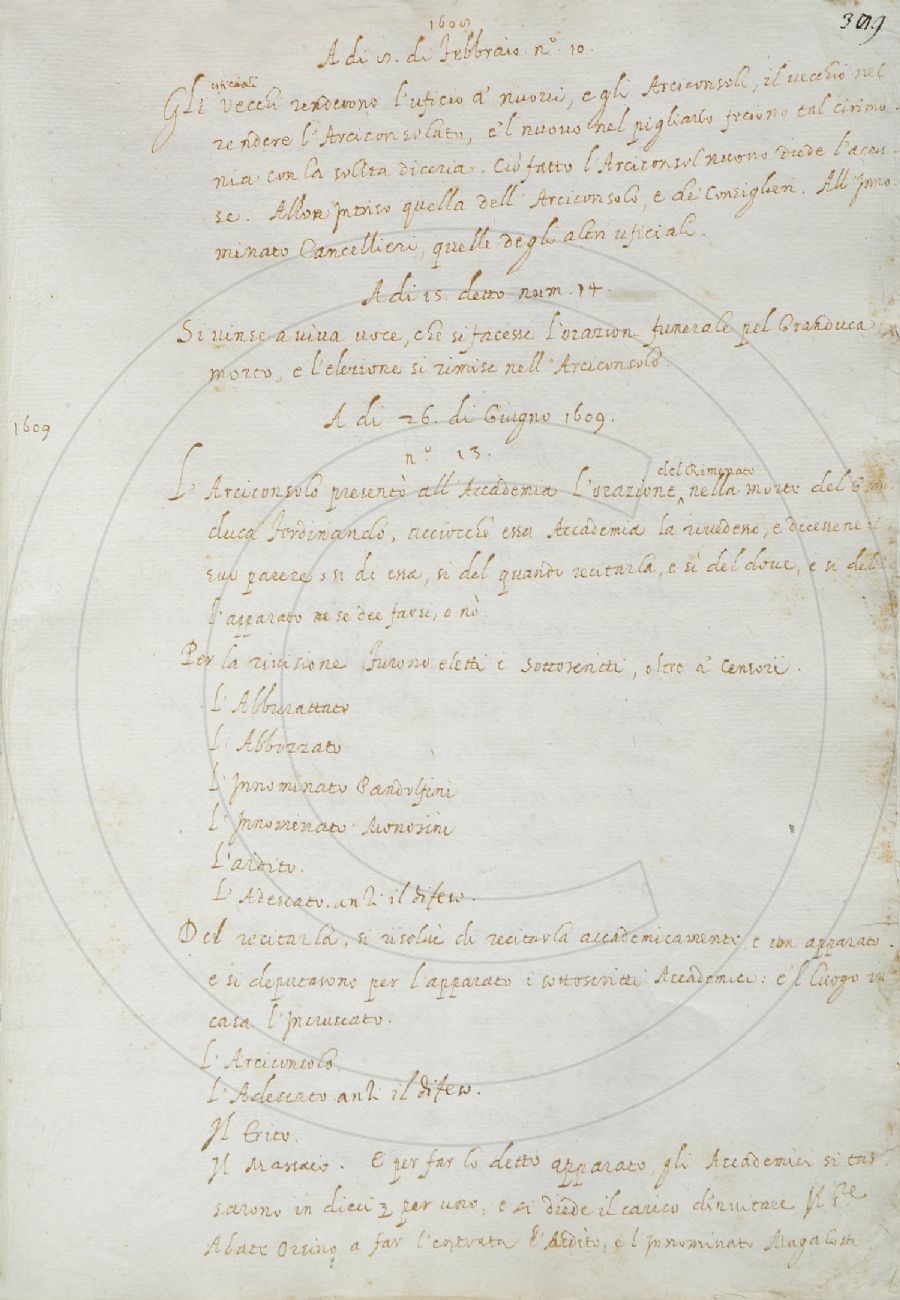 399
1608
A di 5. di Febbraio. n.º 10.
uficiali
Gli Vecchi renderono l'uficio a' nuovi, e gli Arciconsoli, il vecchio nel
rendere l'Arciconsolato, e'l nuovo nel pigliarlo feciono tal cirimo
nia con la solita diceria. Ciò fatto l'Arciconsol nuovo diede l'accu
se. All' Intriso quella dell' Arciconsolo, e de' Consiglieri. All' Inno
minato Cancellieri, quelle degli altri uficiali.
A di 15 detto num. 14.
Si vinse a viva voce, che si facesse l'orazion funerale pel Granduca
morto, e l'elezione si rimise nell' Arciconsolo
A di 26. di Giugno 1609.
1609
n.º 13.
del Rimenato
L' Arciconsolo presentò all' Accademia l'orazione ^ nella morte del Gran
duca Ferdinando, acciocchè essa Accademia la rivedesse, e dicessene il
suo parere, sì di essa, sì del quando recitarla, e sì del dove, e sì del
l'apparato se dee farsi, o nò.
Per la rivisione furono eletti i sottoscritti, oltre a' Censori.
L' Abburattato
L' Abbozzato
L' Innominato Pandolfini
L' Innominato Monosini
L'ardito.
L' Adescato. anzi il difeso.
Del recitarla, si risolvè di recitarla accademicamente e con apparato.
e si deputarono per l'apparato i sottoscritti Accademici: e'l luogo in
casa l'Incruscato.
L' Arciconsolo.
L' Adescato. anzi il difeso.
Il Trito.
Il Massaio. E per far lo detto apparato, gli Accademici si tas
sarono in dieci per uno, e si diede il carico d'invitare Il
Abate Orsino a far l'entrata l'Ardito, e l'Innominato Magalotti